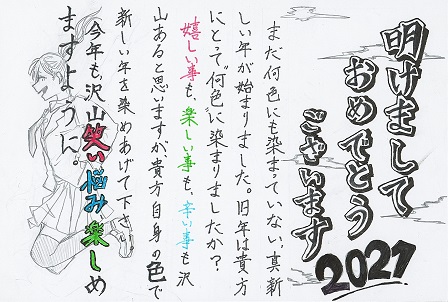 明けまして
おめでとう
ございます
2021
まだ何色にも染まっていない、真新
しい年が始まりました。旧年は貴方
にとって"何色"に染まりましたか?
嬉しい事も、楽しい事も、辛い事も沢
山あると思いますが貴方自身の色で
新しい年を染めあげて下さい
今年も、沢山笑い悩み楽しめ
ますように。